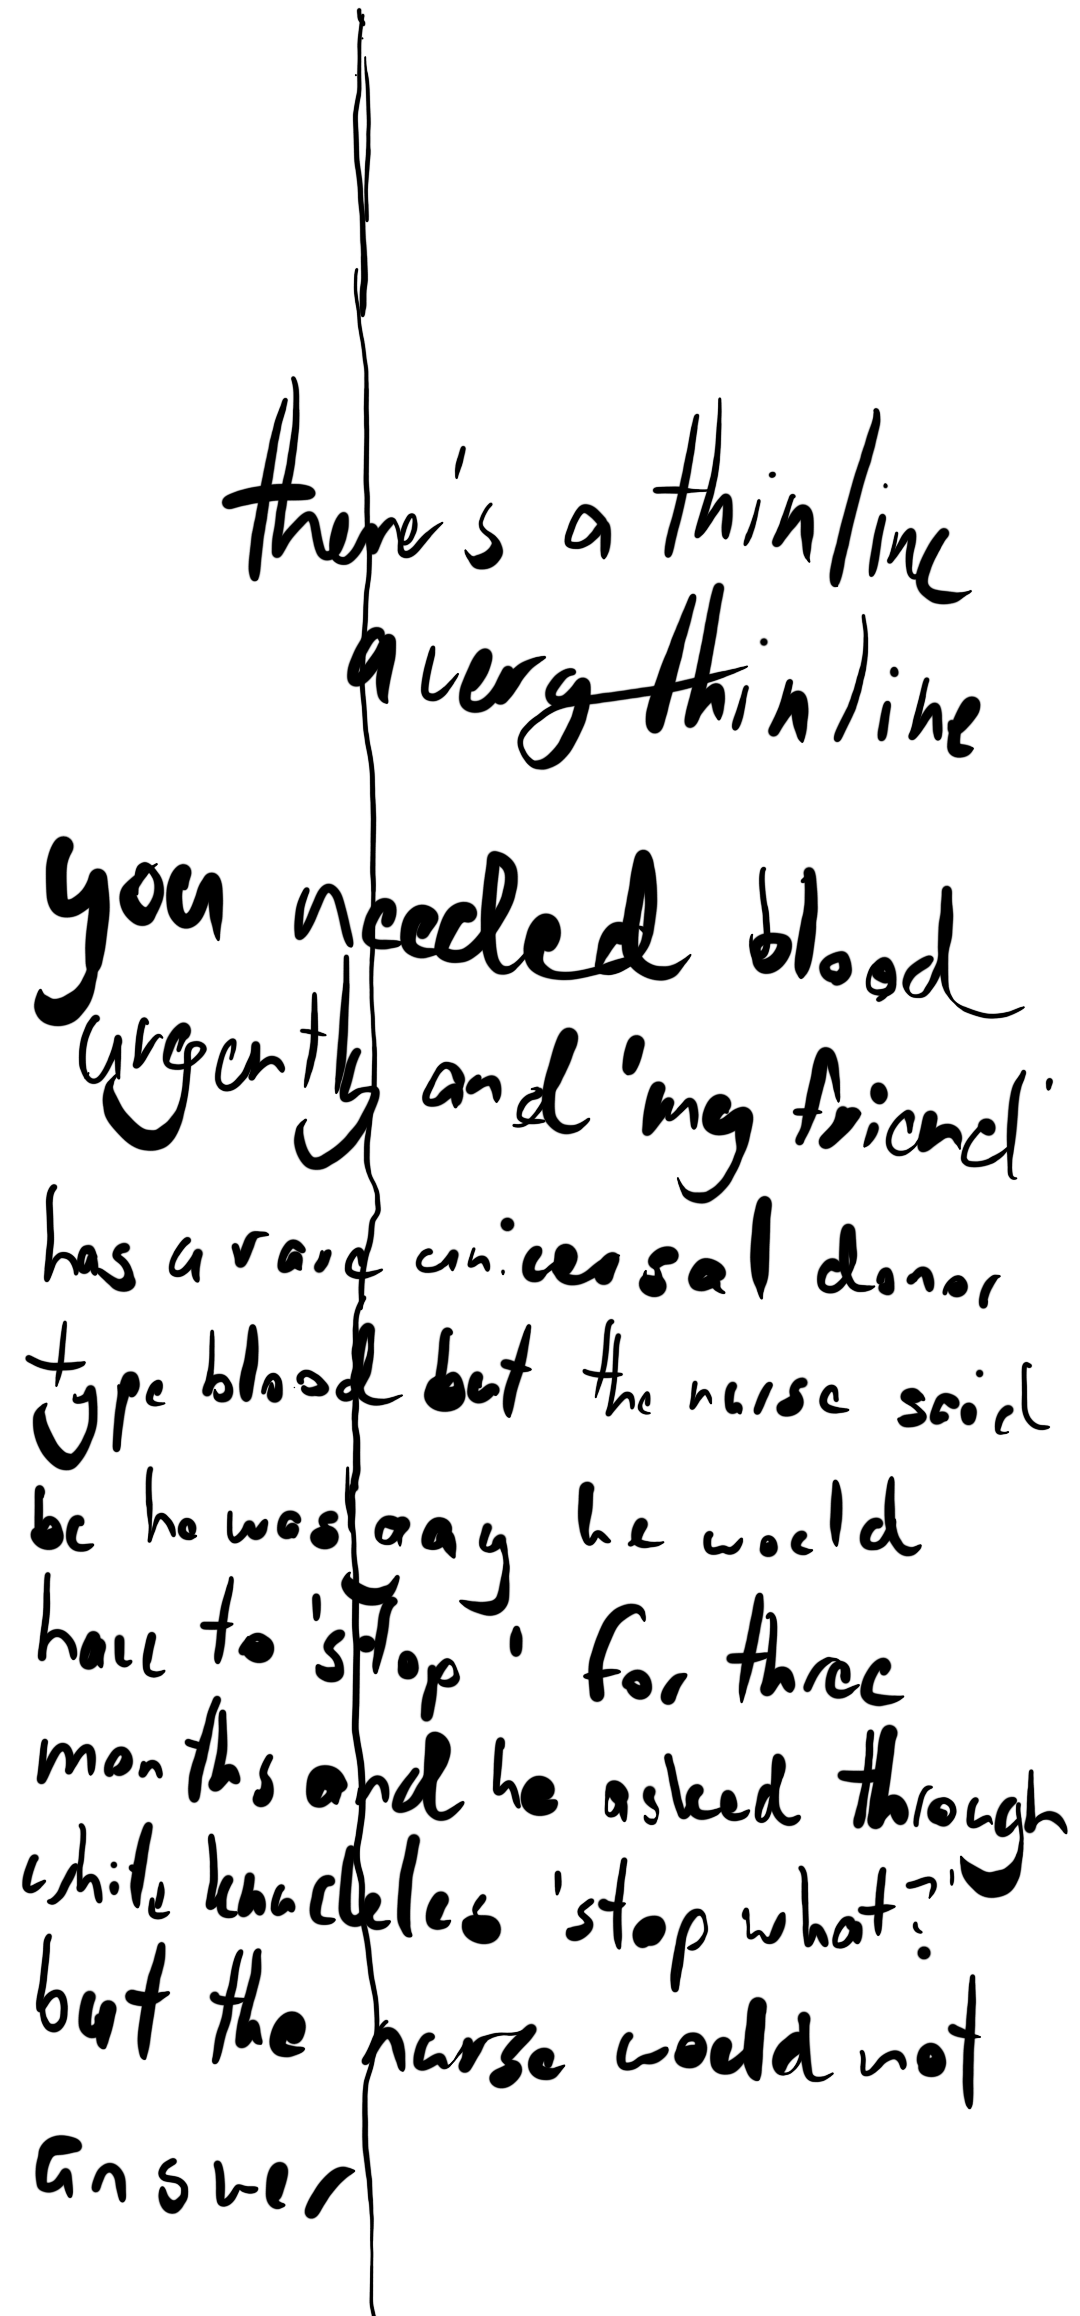 there's a thin line
a very thin line
you needed blood
urgently and 'my friend'
has a rare universal donor
type blood but the nurse said
bc he was gay he would
have to 'stop' for three
months and he asked through
white knuckles 'stop what?'
but the nurse would not
answer